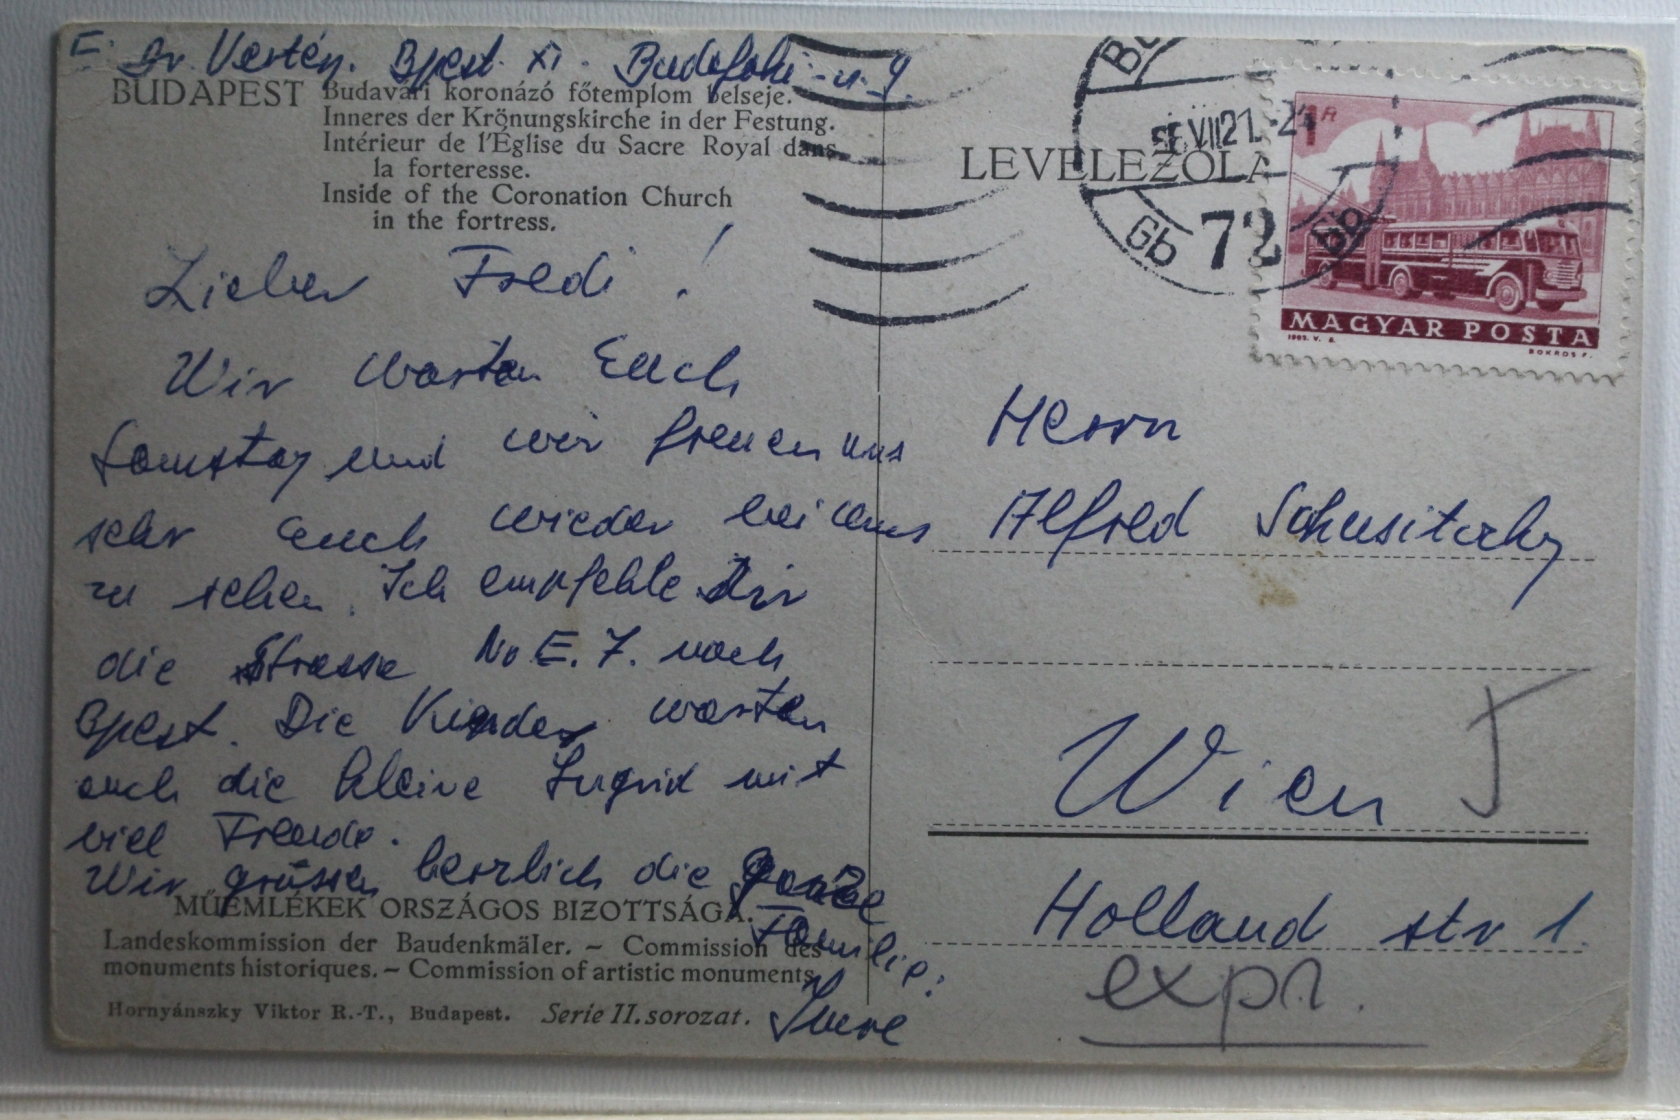 E. Dr Vertén. Bpest. XI. Budafoki-u. 9.
BUDAPEST Budavári koronázó főtemplom belseje.
Inneres der Krönungskirche in der Festung.
Intérieur de l'Église du Sacre Royal dans
la forteresse.
Inside of the Coronation Church
in the fortress.
Lieber Fredi!
Wir warten Euch
Samstag und wir freuen uns
sehr euch wieder bei uns
zu sehen. Ich empfehle Dir
die Strasse No E. 7. nach
Bpest. Die Kinder warten
auch die kleine Ingrid mit
viel Freude.
Wir grüssen herzlich die ganze
Familie:
Imre
MŰEMLÉKEK ORSZÁGOS BIZOTTSÁGA.
Landeskommission der Baudenkmäler. – Commission des
monuments historiques. – Commission of artistic monuments.
Hornyánszky Viktor R.-T., Budapest. Serie II. sorozat.
LEVELEZŐLA
VII 21.
Gb 72 Gb
1 Ft
MAGYAR POSTA
1963. V. 8. BOKROS F.
Herrn
Alfred
Wien
Holland str 1.
expr.